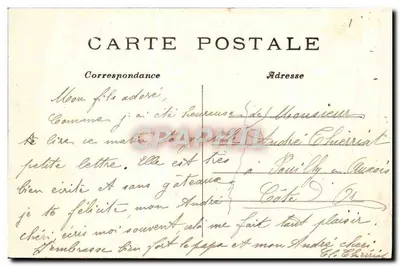 CARTE POSTALE
Correspondance
Adresse
Mon fils adoré,
Comme j'ai été heureuse
de lire ce matin ta gentille
petite lettre. Elle est très
bien écrite et sans gâteaux
je te félicite, mon André
chéri, écris moi souvent, cela me fait tant plaisir
J'embrasse bien fort le papa et mon André chéri
Monsieur
André Thierriat
à Pouilly en Auxois
Côte d'Or
CPARAMA